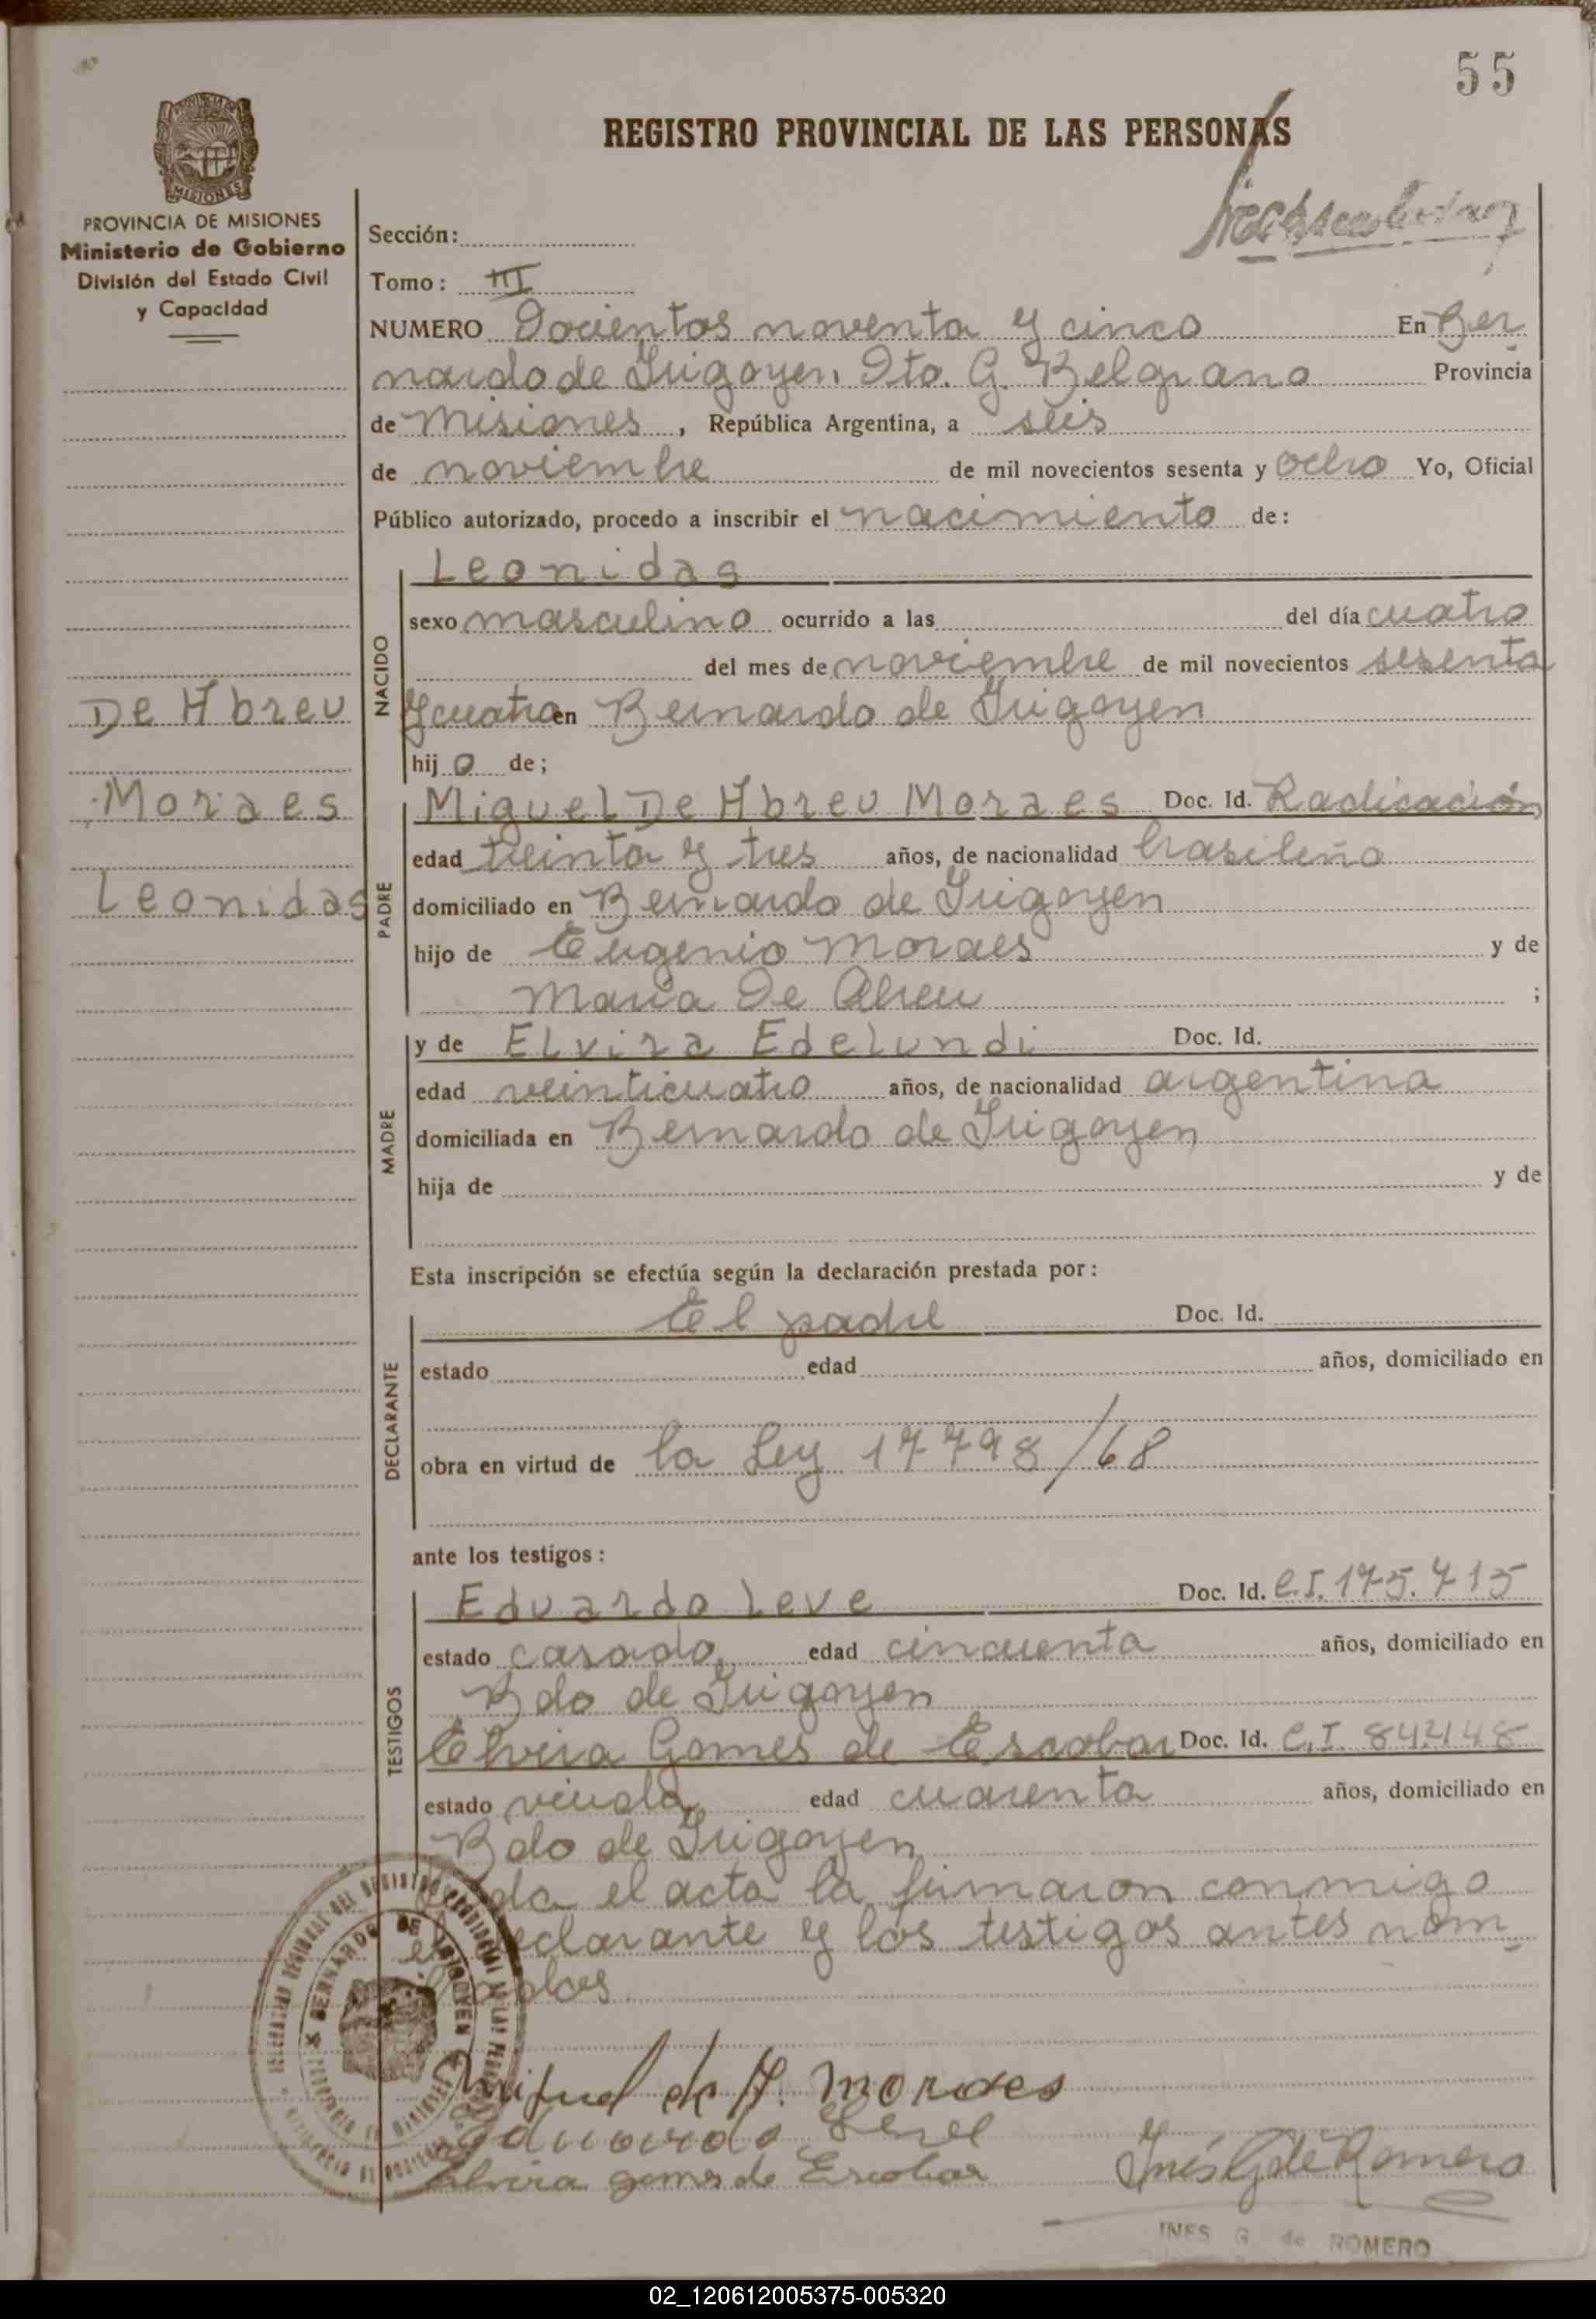 55
REGISTRO PROVINCIAL DE LAS PERSONAS
PROVINCIA DE MISIONES
Ministerio de Gobierno
División del Estado Civil
y Capacidad
Sección:
Tomo: III
NUMERO Docientos noventa y cinco En Ber
nardo de Irigoyen, Dto. G. Belgrano Provincia
de Misiones, República Argentina, a seis
de noviembre de mil novecientos sesenta y ocho Yo, Oficial
Público autorizado, procedo a inscribir el nacimiento de:
Leonidas
NACIDO
sexo masculino ocurrido a las del día cuatro
del mes de noviembre de mil novecientos sesenta
y cuatro en Bernardo de Irigoyen
hijo de;
De Abreu
Moraes
Leonidas
PADRE
Miguel De Abreu Moraes Doc. Id. Radicación
edad treinta y tres años, de nacionalidad brasileño
domiciliado en Bernardo de Irigoyen
hijo de Eugenio Moraes y de
Maria De Abreu ;
MADRE
y de Elvira Edelundi Doc. Id.
edad veinticuatro años, de nacionalidad argentina
domiciliada en Bernardo de Irigoyen
hija de y de
Esta inscripción se efectúa según la declaración prestada por:
DECLARANTE
El padre Doc. Id.
estado edad años, domiciliado en
obra en virtud de la Ley 17798/68
ante los testigos:
TESTIGOS
Eduardo Leve Doc. Id. C.I. 175.715
estado casado, edad cincuenta años, domiciliado en
Bdo de Irigoyen
Elvira Gomes de Escobar Doc. Id. C.I. 84248
estado viuda edad cuarenta años, domiciliado en
Bdo de Irigoyen
el acta la firmaron conmigo
el declarante y los testigos antes nom
brados
BERNARDO DE IRIGOYEN
Miguel de A. Moraes
Eduardo Leve
Elvira gomes de Escobar
Inés G de Romero
INES G. de ROMERO
02_120612005375-005320